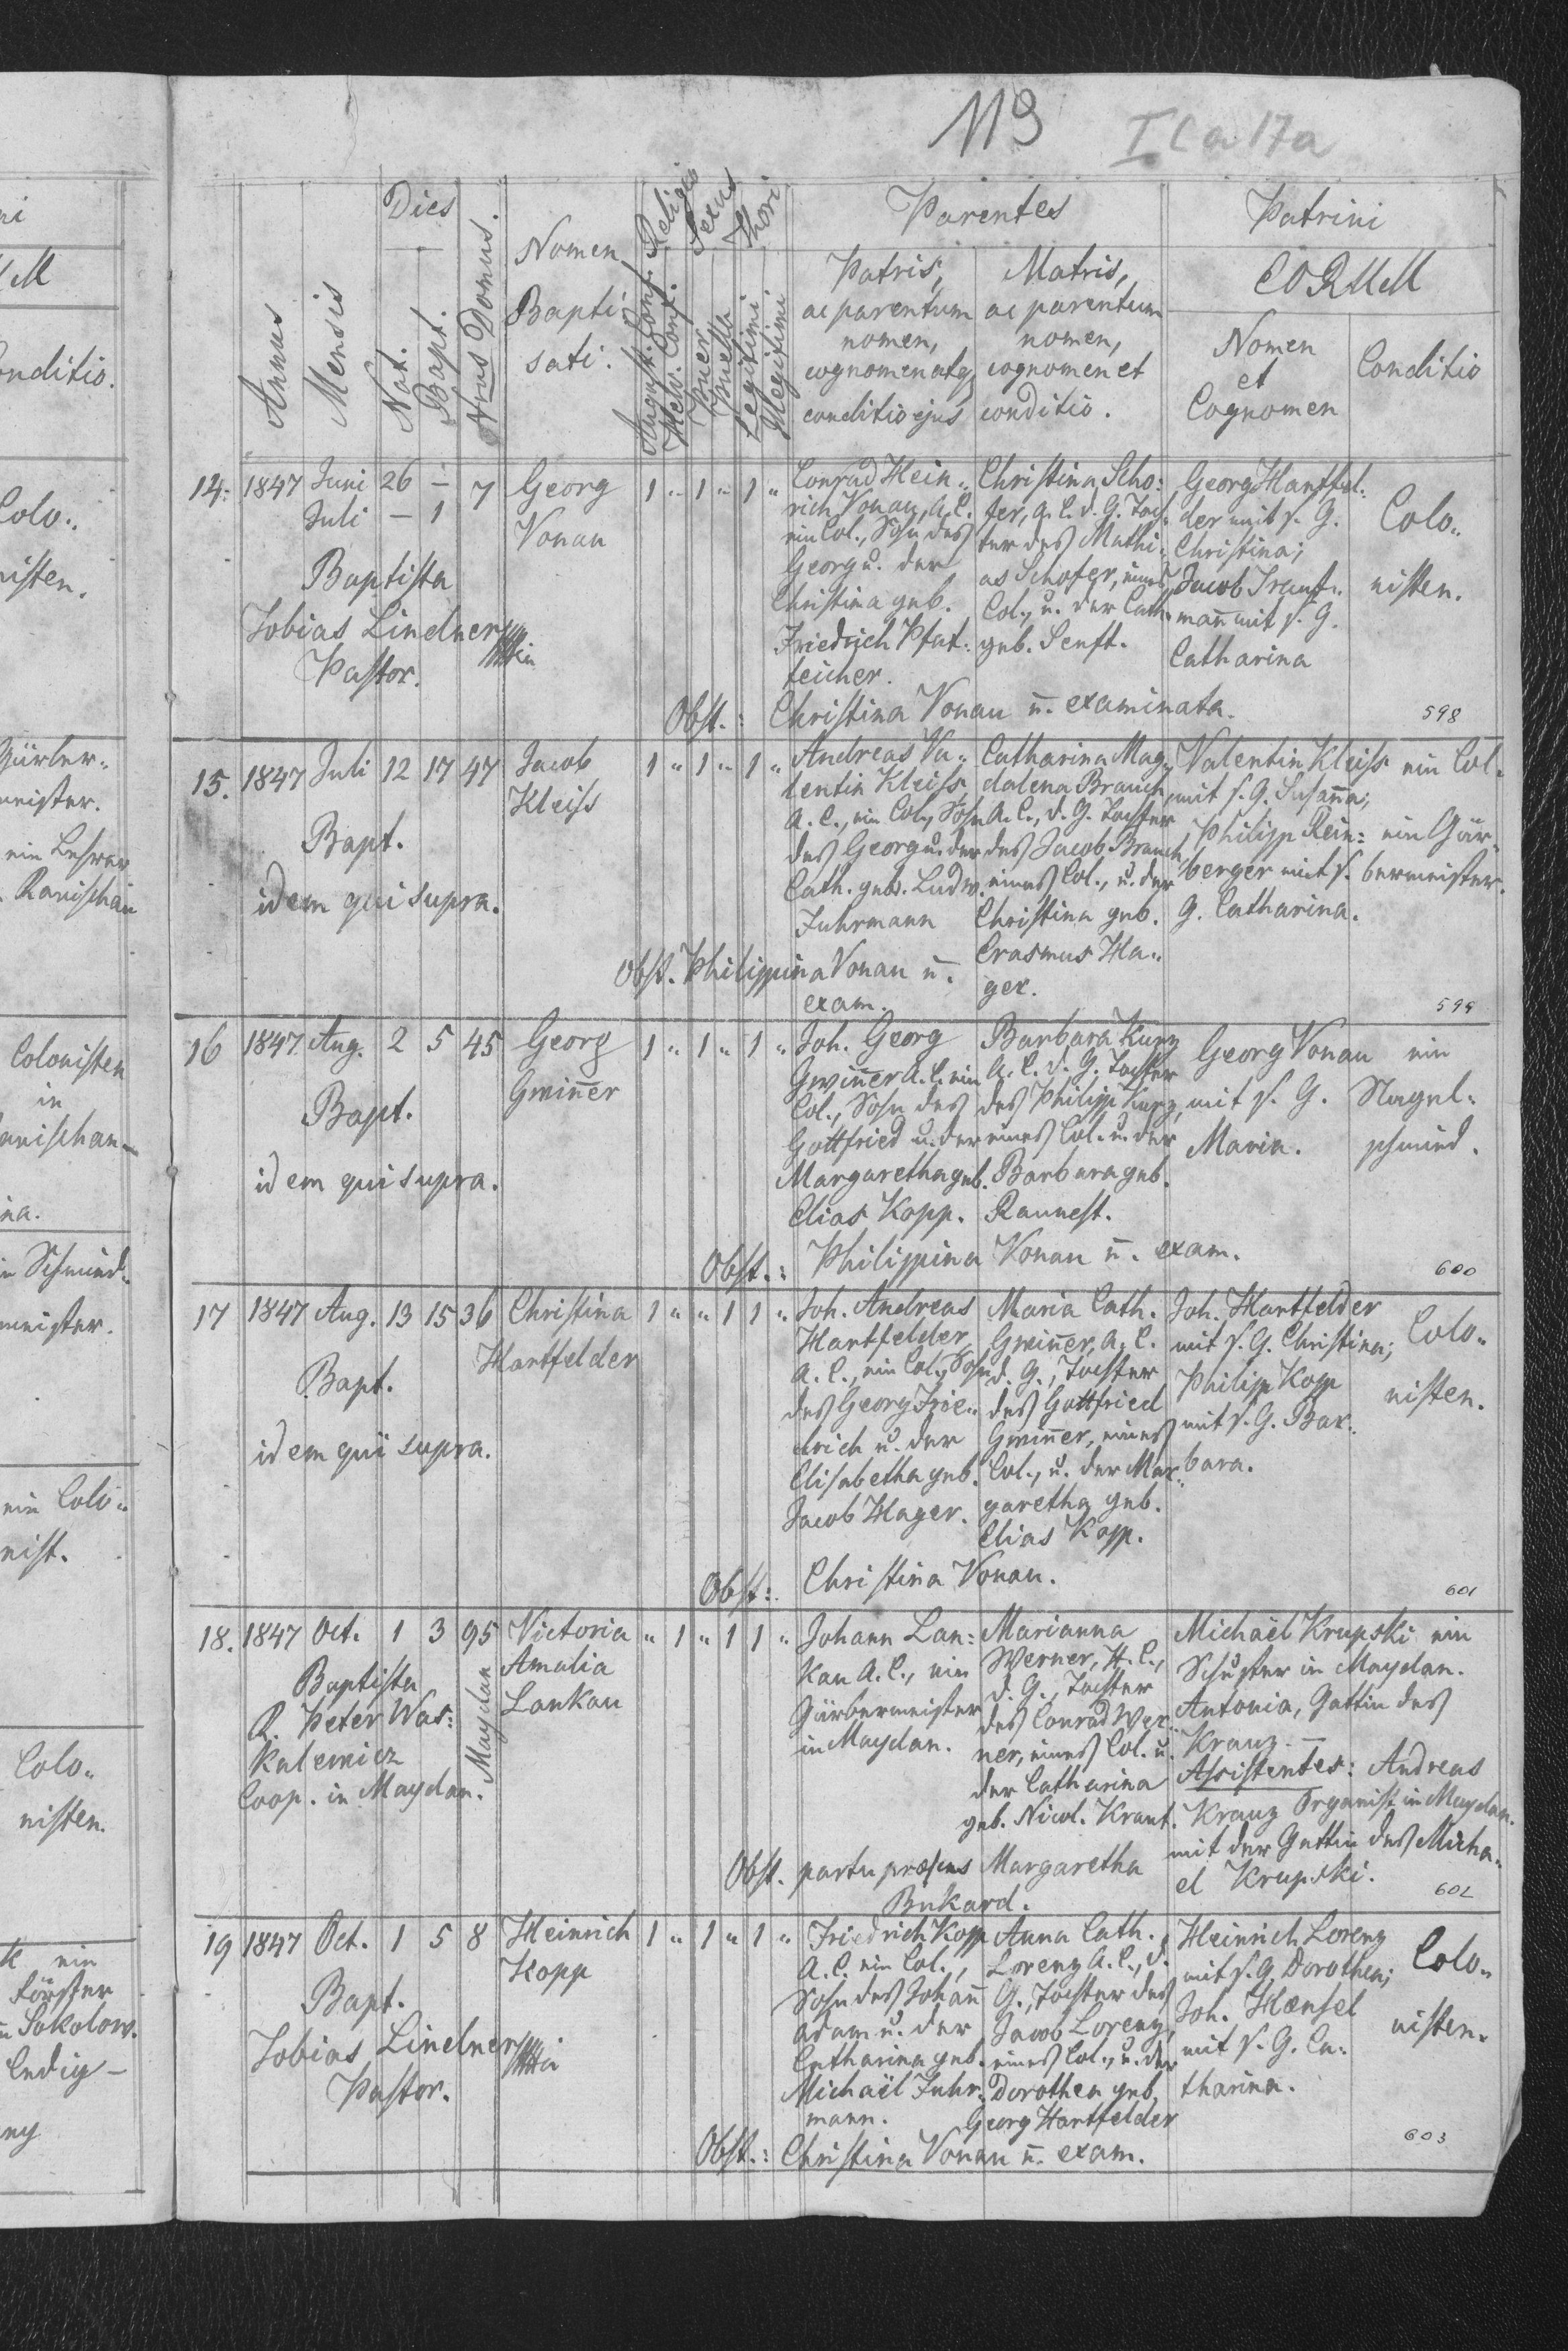 113
I C a 17a
Dies
Parentes
Patrini
Annus
Mensis
Nat.
Bapt.
Nrus Domus.
Nomen
Bapti
sati.
Religio
August. Conf.
Helv. Conf.
Sexus
Puer
Puella
Thori
Legitimi
Illegitimi
Patris,
ac parentum
nomen,
cognomen atq
conditio ejus
Matris,
ac parentum
nomen,
cognomen et
conditio.
EORUM
Nomen
et
Cognomen
Conditio
14. 1847 Juni 26 – 7
Juli – 1
Georg
Vonau
1 " 1 " 1 "
Baptista
Tobias Lindner
Pastor.
Conrad Hein„
rich Vonau, A. C.
ein Col., Sohn des
Georg u. der
Christina geb.
Friedrich Pfat„
teicher.
Christina Scho„
fer, A. C. d. G. Toch„
ter des Mathi„
as Schofer, eines
Col., u. der Cath
geb. Senft.
Georg Hartfel„
der mit s. G.
Christina;
Jacob Traut„
man̄ mit s. G.
Catharina
Colo„
nisten.
Obst.: Christina Vonau n̄. examinata.
598
15. 1847 Juli 12 17 47 Jacob
Kleiss
1 " 1 " 1 "
Bapt.
idem qui supra.
Andreas Va„
lentin Kleiss,
A. C., ein Col., Sohn
des Georg u. der
Cath. geb. Ludw.
Fuhrmann
Catharina Mag„
dalena Brauch,
A. C., d. G. Tochter
des Jacob Brauch,
eines Col., u. der
Christina geb.
Erasmus Ha„
ger.
Valentin Kleiss
mit s. G. Susan̄a;
Philipp Rein„
berger mit s.
G. Catharina.
ein Col.
ein Gär„
bermeister.
Obst. Philippina Vonau n̄.
exam.
599
16 1847 Aug. 2 5 45 Georg
Gwin̄er
1 " 1 " 1 "
Bapt.
idem qui supra.
Joh. Georg
Gwin̄er A. C. ein
Col., Sohn des
Gottfried u. der
Margaretha geb.
Elias Kopp.
Barbara Kurz
A. C. d. G. Tochter
des Philipp Kurz,
eines Col. u. der
Barbara geb.
Raunest.
Georg Vonau
mit s. G.
Maria.
ein
Nagel„
schmied.
Obst.: Philippina Vonau n̄. exam.
600
17 1847 Aug. 13 15 36 Christina
Hartfelder
1 " " 1 1 "
Bapt.
idem qui supra.
Joh. Andreas
Hartfelder,
A. C., ein Col., Sohn
des Georg Frie„
drich u. der
Elisabetha geb.
Jacob Hager.
Maria Cath.
Gwin̄er, A. C.
d. G., Tochter
des Gottfried
Gwin̄er, eines
Col., u. der Mar„
garetha geb.
Elias Kopp.
Joh. Hartfelder
mit s. G. Christina;
Philipp Kopp
mit s. G. Bar„
bara.
Colo„
nisten.
Obst.: Christina Vonau.
601
18. 1847 Oct. 1 3 95
Maydan
Victoria
Amalia
Lankau
" 1 " 1 1 "
Baptista
R. Peter Was„
kulewicz
Coop. in Maydan.
Johann Lan„
kau A. C., ein
Gärbermeister
in Maydan.
Marianna
Werner, H. C.,
d. G., Tochter
des Conrad Wer„
ner, eines Col. u.
der Catharina
geb. Nicol. Kraut.
Michaël Krupski ein
Schuster in Maydan.
Antonia, Gattin des
Krauz. –
Assistentes: Andreas
Krauz Organist in Maydan.
mit der Gattin des Micha„
el Krupski.
Obst. partu præsens Margaretha
Bukard.
602
19 1847 Oct. 1 5 8 Heinrich
Kopp
1 " 1 " 1 "
Bapt.
Tobias Lindner
Pastor.
Friedrich Kopp
A. C. ein Col.,
Sohn des Johan̄
Adam u. der
Catharina geb.
Michaël Fuhr„
mann.
Anna Cath.
Lorenz A. C., d.
G., Tochter des
Jacob Lorenz,
eines Col., u. der
Dorothea geb.
Georg Hartfelder
Heinrich Lorenz
mit s. G. Dorothea;
Joh. Hænsel
mit s. G. Ca„
tharina.
Colo„
nisten.
Obst.: Christina Vonau n̄. exam.
603